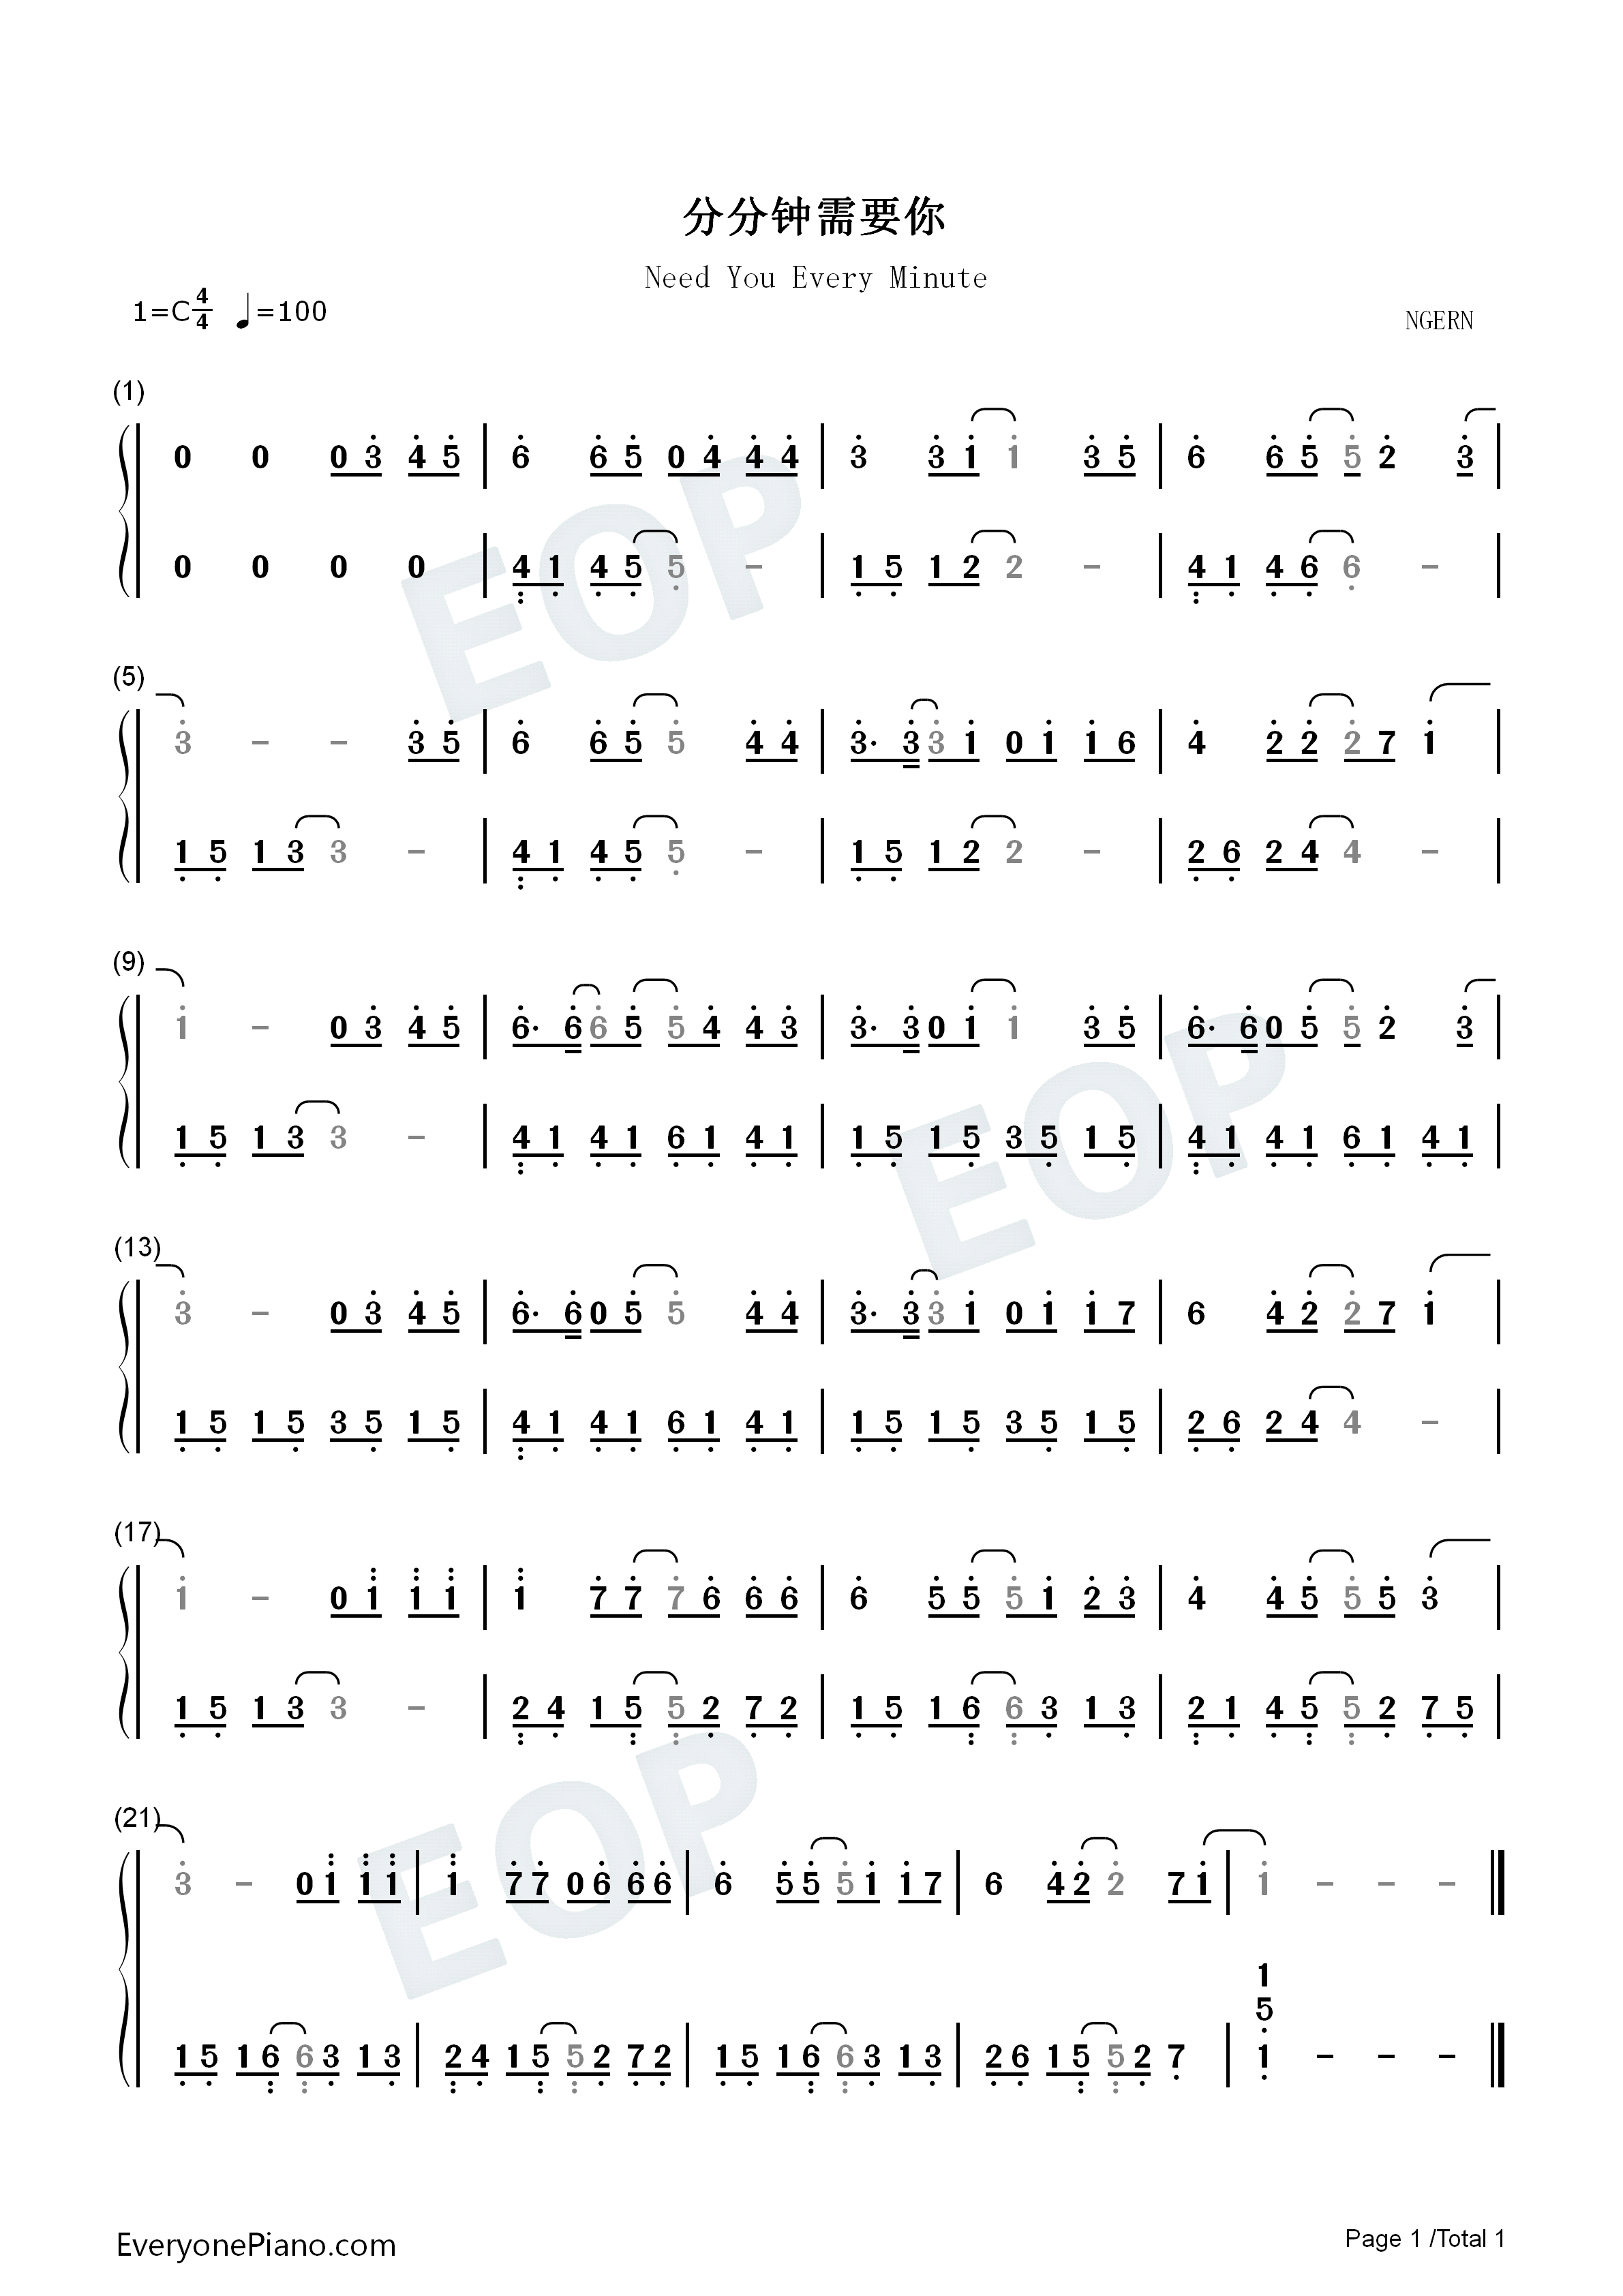 分分钟需要你
Need You Every Minute
1=C 4/4 ♩=100
NGERN
(1)
0 0 0 3̇ 4̇ 5̇ | 6̇ 6̇ 5̇ 0 4̇ 4̇ 4̇ | 3̇ 3̇ 1̇ 1̇ 3̇ 5̇ | 6̇ 6̇ 5̇ 5̇ 2̇ 3̇ |
0 0 0 0 | 4 1 4 5 5 - | 1 5 1 2 2 - | 4 1 4 6 6 - |
(5)
3̇ - - 3̇ 5̇ | 6̇ 6̇ 5̇ 5̇ 4̇ 4̇ | 3̇· 3̇ 3̇ 1̇ 0 1̇ 1̇ 6 | 4̇ 2̇ 2̇ 2̇ 7 1̇ |
1 5 1 3 3 - | 4 1 4 5 5 - | 1 5 1 2 2 - | 2 6 2 4 4 - |
(9)
1̇ - 0 3̇ 4̇ 5̇ | 6̇· 6̇ 6̇ 5̇ 5̇ 4̇ 4̇ 3̇ | 3̇· 3̇ 0 1̇ 1̇ 3̇ 5̇ | 6̇· 6̇ 0 5̇ 5̇ 2̇ 3̇ |
1 5 1 3 3 - | 4 1 4 1 6 1 4 1 | 1 5 1 5 3 5 1 5 | 4 1 4 1 6 1 4 1 |
(13)
3̇ - 0 3̇ 4̇ 5̇ | 6̇· 6̇ 0 5̇ 5̇ 4̇ 4̇ | 3̇· 3̇ 3̇ 1̇ 0 1̇ 1̇ 7 | 6 4̇ 2̇ 2̇ 7 1̇ |
1 5 1 5 3 5 1 5 | 4 1 4 1 6 1 4 1 | 1 5 1 5 3 5 1 5 | 2 6 2 4 4 - |
(17)
1̇ - 0 1̈ 1̈ 1̈ | 1̈ 7̇ 7̇ 7̇ 6̇ 6̇ 6̇ | 6̇ 5̇ 5̇ 5̇ 1̇ 2̇ 3̇ | 4̇ 4̇ 5̇ 5̇ 5̇ 3̇ |
1 5 1 3 3 - | 2 4 1 5 5 2 7 2 | 1 5 1 6 6 3 1 3 | 2 1 4 5 5 2 7 5 |
(21)
3̇ - 0 1̈ 1̈ 1̈ | 1̈ 7̇ 7̇ 0 6̇ 6̇ 6̇ | 6̇ 5̇ 5̇ 5̇ 1̇ 1̇ 7 | 6 4̇ 2̇ 2̇ 7 1̇ | 1̇ - - -
1
5
1 5 1 6 6 3 1 3 | 2 4 1 5 5 2 7 2 | 1 5 1 6 6 3 1 3 | 2 6 1 5 5 2 7 | 1 - - -
EOP
EOP
EOP
EveryonePiano.com
Page 1 /Total 1